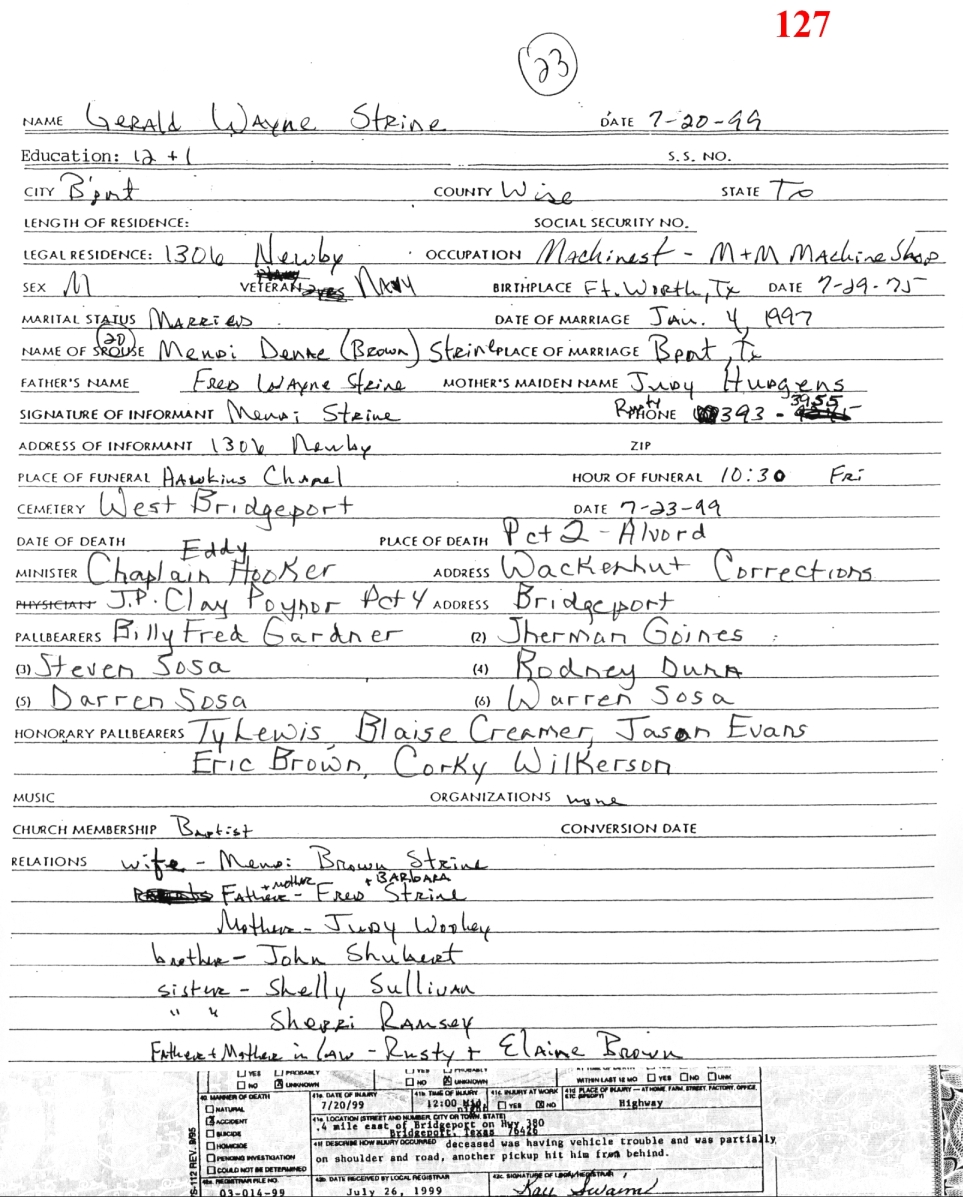 127
23
NAME Gerald Wayne Strine DATE 7-20-99
Education: 12 + 1 S.S. NO.
CITY B'port COUNTY Wise STATE Tx
LENGTH OF RESIDENCE: SOCIAL SECURITY NO.
LEGAL RESIDENCE: 1306 Newby OCCUPATION Machinest - M+M Machine Shop
SEX M VETERAN yes Navy BIRTHPLACE Ft. Worth, Tx DATE 7-29-75
MARITAL STATUS Married DATE OF MARRIAGE Jan. 4, 1997
20
NAME OF SPOUSE Mendi (Brown) Strine PLACE OF MARRIAGE Bport, Tx
FATHER'S NAME Fred Wayne Strine MOTHER'S MAIDEN NAME Judy Hudgens
SIGNATURE OF INFORMANT Mendi Strine Rusty PHONE 393 - 3955
ADDRESS OF INFORMANT 1306 Newby ZIP
PLACE OF FUNERAL Hawkins Chapel HOUR OF FUNERAL 10:30 Fri
CEMETERY West Bridgeport DATE 7-23-99
DATE OF DEATH PLACE OF DEATH Pct 2 - Alvord
MINISTER Chaplain Eddy Hooker ADDRESS Wackenhut Corrections
PHYSICIAN J.P. Clay Poynor Pct 4 ADDRESS Bridgeport
PALLBEARERS Billy Fred Gardner (2) Jherman Goines
(3) Steven Sosa (4) Rodney Dunn
(5) Darren Sosa (6) Warren Sosa
HONORARY PALLBEARERS Ty Lewis, Blaise Creamer, Jason Evans
Eric Brown, Corky Wilkerson
MUSIC ORGANIZATIONS none
CHURCH MEMBERSHIP Baptist CONVERSION DATE
RELATIONS wife - Mendi Brown Strine
Father + mother - Fred + BARBARA Strine
Mother - Judy Wooley
brother - John Shubert
sister - Shelly Sullivan
" " Sherri Ramsey
Father + Mother in law - Rusty + Elaine Brown
YES PROBABLY
NO UNKNOWN NO UNKNOWN WITHIN LAST 12 MO YES NO UNK
40. MANNER OF DEATH 41a. DATE OF INJURY 41b. TIME OF INJURY 41c. INJURY AT WORK 41d. PLACE OF INJURY — AT HOME, FARM, STREET, FACTORY, OFFICE, ETC. (SPECIFY)
NATURAL 7/20/99 12:00 Mid night YES NO Highway
ACCIDENT 41e. LOCATION (STREET AND NUMBER, CITY OR TOWN, STATE)
SUICIDE .4 mile east of Bridgeport on Hwy 380
Bridgeport, Texas 76426
HOMICIDE 41f. DESCRIBE HOW INJURY OCCURRED deceased was having vehicle trouble and was partially
PENDING INVESTIGATION on shoulder and road, another pickup hit him from behind.
COULD NOT BE DETERMINED
REGISTRAR FILE NO. 42b. DATE RECEIVED BY LOCAL REGISTRAR 42c. SIGNATURE OF LOCAL REGISTRAR
03-014-99 July 26, 1999 Kay Swaim
VS-112 REV. 9/95